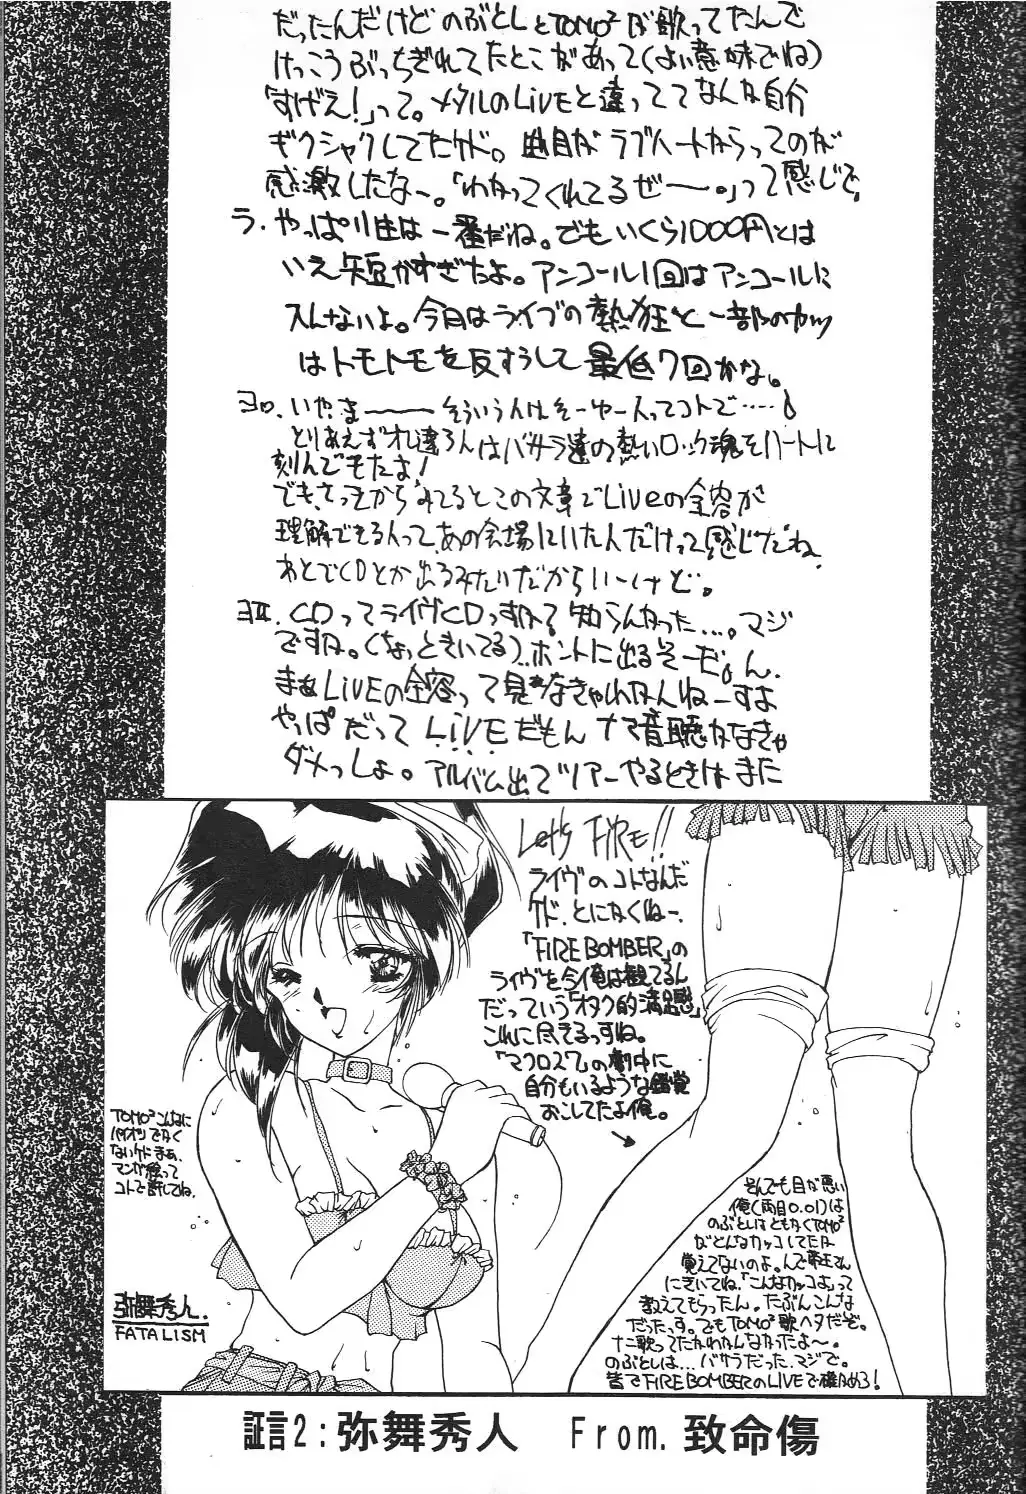 だったんだけどのぶとしとTOMO²が歌ってたんで
けっこうぶっちぎれてたとこがあって(よい意味でね)
「すげえ!」って。メタルのLiVEと違っててなんか自分
ギクシャクしてたケド。曲目がラブハートからってのが
感激したなー。「わかってくれてるぜー。」って感じで。
ラ. やっぱり生は一番だね。でもいくら1000円とは
いえ短かすぎたよ。アンコール1回はアンコールに
入んないよ。今日はライブの熱狂と一部のヤツ
はトモトモを反すうして最低7回かな。
ヨロ. いや、まーーーそういう人はそーゆー人ってコトで……
とりあえずオレ達ろんはバサラ達の熱いロック魂をハートに
刻んでもたよ!
できさっきからみてるとこの文章でLiveの全容が
理解できる人って、あの会場にいた人だけって感じだね。
あとでCDとか出るみたいだからいーけど。
ヨII. CDってライヴCDっすね? 知らんなかった…。マジ
ですね。(なっときいてる)..ホントに出るそーだ。ん.
まぁLiVEの全容って見なきゃわかんねーすよ
やっぱだってLiVEだもん ナマ音聴かなきゃ
ダメっしょ。アルバム出てツアーやるときはまた
Let's FiRE!!
ライヴのコトなんだ
ケド、とにかくねー、
「FIRE BOMBER」の
ライヴを今俺は観てるん
だっていう「オタク的満足感」
これに尽きるっすね。
「マクロス7」の劇中に
自分もいるような錯覚
おこしてたよ俺。
TOMO²こんなに
パイオツでかく
ないケドまぁ、
マンガ絵って
コトで許してね.
そんでも目が悪い
俺(両目0.01)は
のぶとしはともかくTOMO²
がどんなカッコしてたか
覚えてないのよ。んで弟王さん
にきいてね、「こんなカッコよ」って
教えてもらったん。たぶんこんな
だったっす。でもTOMO²歌ヘタだぞ。
ナニ歌ってたかわかんなかったよ〜。
のぶとしは…バサラだった、マジで。
皆でFIRE BOMBERのLIVEで確かめろ!
弥舞秀人.
FATALISM
証言2:弥舞秀人 From. 致命傷